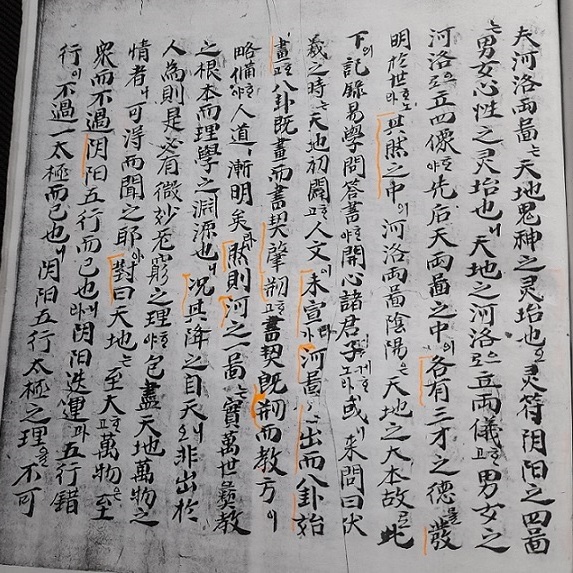 夫河洛兩啚는天地鬼神之灵坮也오灵符阴阳之四啚
는男女心性之灵坮也니天地之河洛으로立兩儀하고男女之
河洛으로立四像하야先后天兩啚之中의各有三才之德을發
明於世하노라其然之中의河洛兩啚陰陽은天地之大本故로此
下의記錄易學問答書하야開心諸君子게하노라或이来問曰伏
羲之時는天地初闢하고人文이未宣이라가河啚이出而八卦始
畫하고八卦既畫而書契肇刱하고書契既刱而教方이
略備하야人道ㅣ漸明矣라然則河之一啚는實萬世彛教
之根本而理學之淵源也니况其降之自天오내非出於
人為則是必有微妙无窮之理하야包盡天地萬物之
情者니可得而聞之耶아對曰天地는至大하고萬物은至
衆而不過阴阳五行而已也니라阴阳迭運과五行錯
行이不過一太極而已也니阴阳五行太極之理을不可